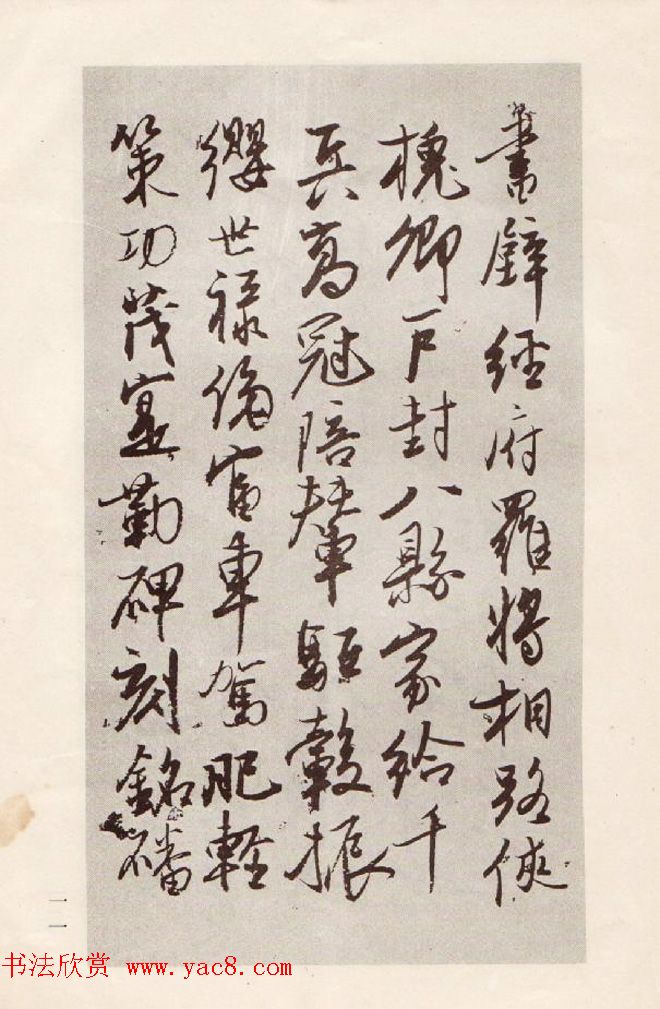 書壁經府羅將相路俠
槐卿戶封八縣家給千
兵高冠陪輦驅轂振
纓世祿侈富車駕肥輕
策功茂實勒碑刻銘磻
一一
书法欣赏 www.yac8.com